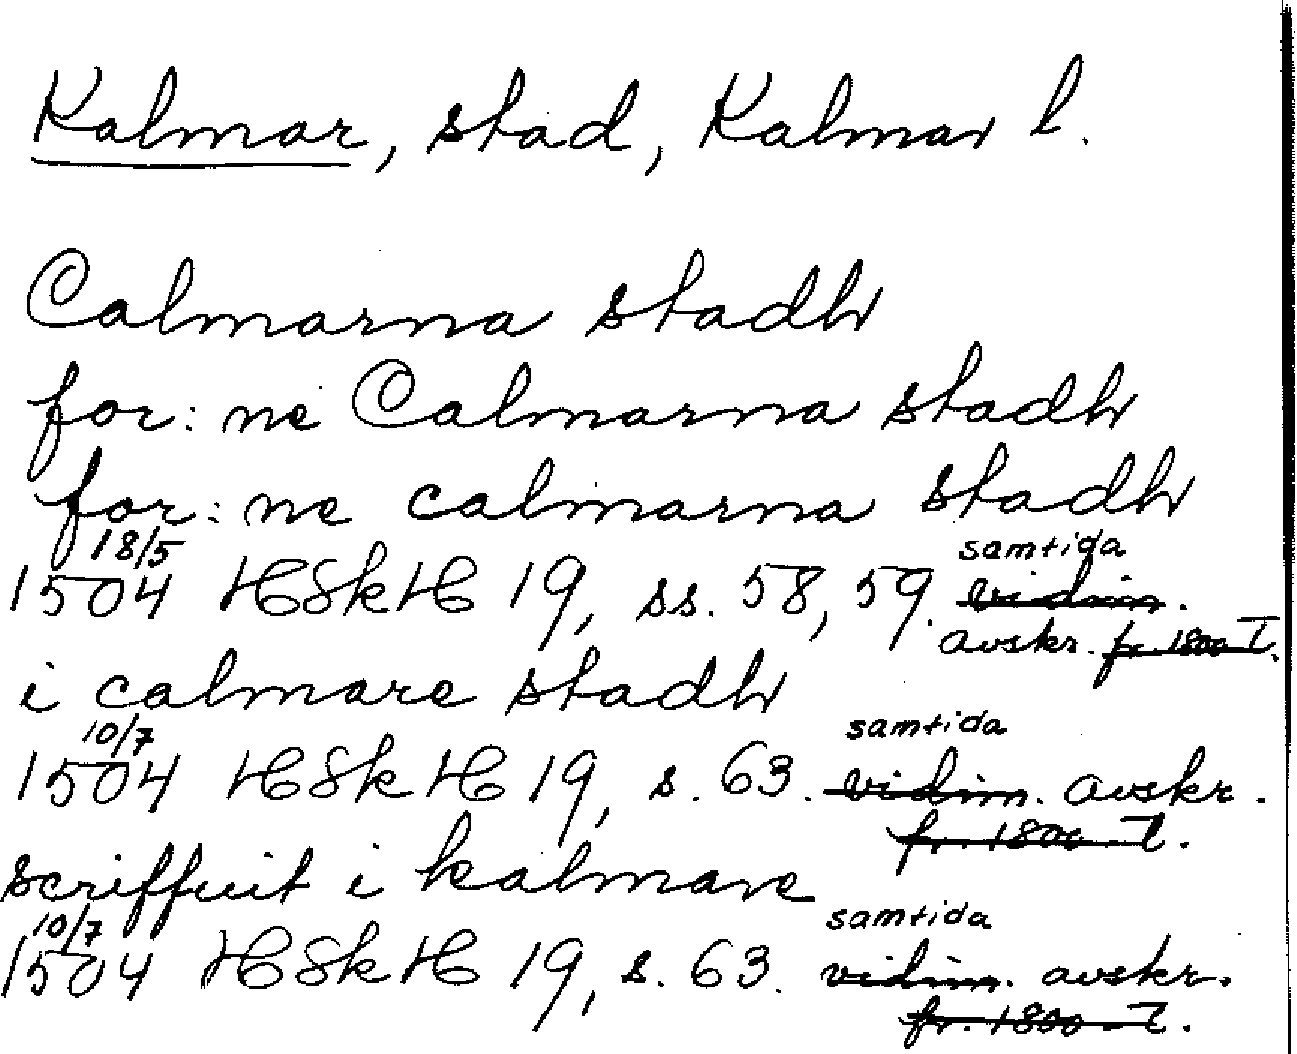 Kalmar, stad, Kalmar l.
Calmarna stadh
for: ne Calmarna stadh
for: ne calmarna stadh
18/5
1504 HSkH 19, ss. 58, 59. samtida vidim.
avskr. fr. 1800-t.
i calmare stadh
10/7 samtida
1504 HSkH 19, s. 63. vidim. avskr.
fr. 1800-t.
scriffuit i kalmare
10/7 samtida
1504 HSkH 19, s. 63. vidim. avskr.
fr. 1800-t.